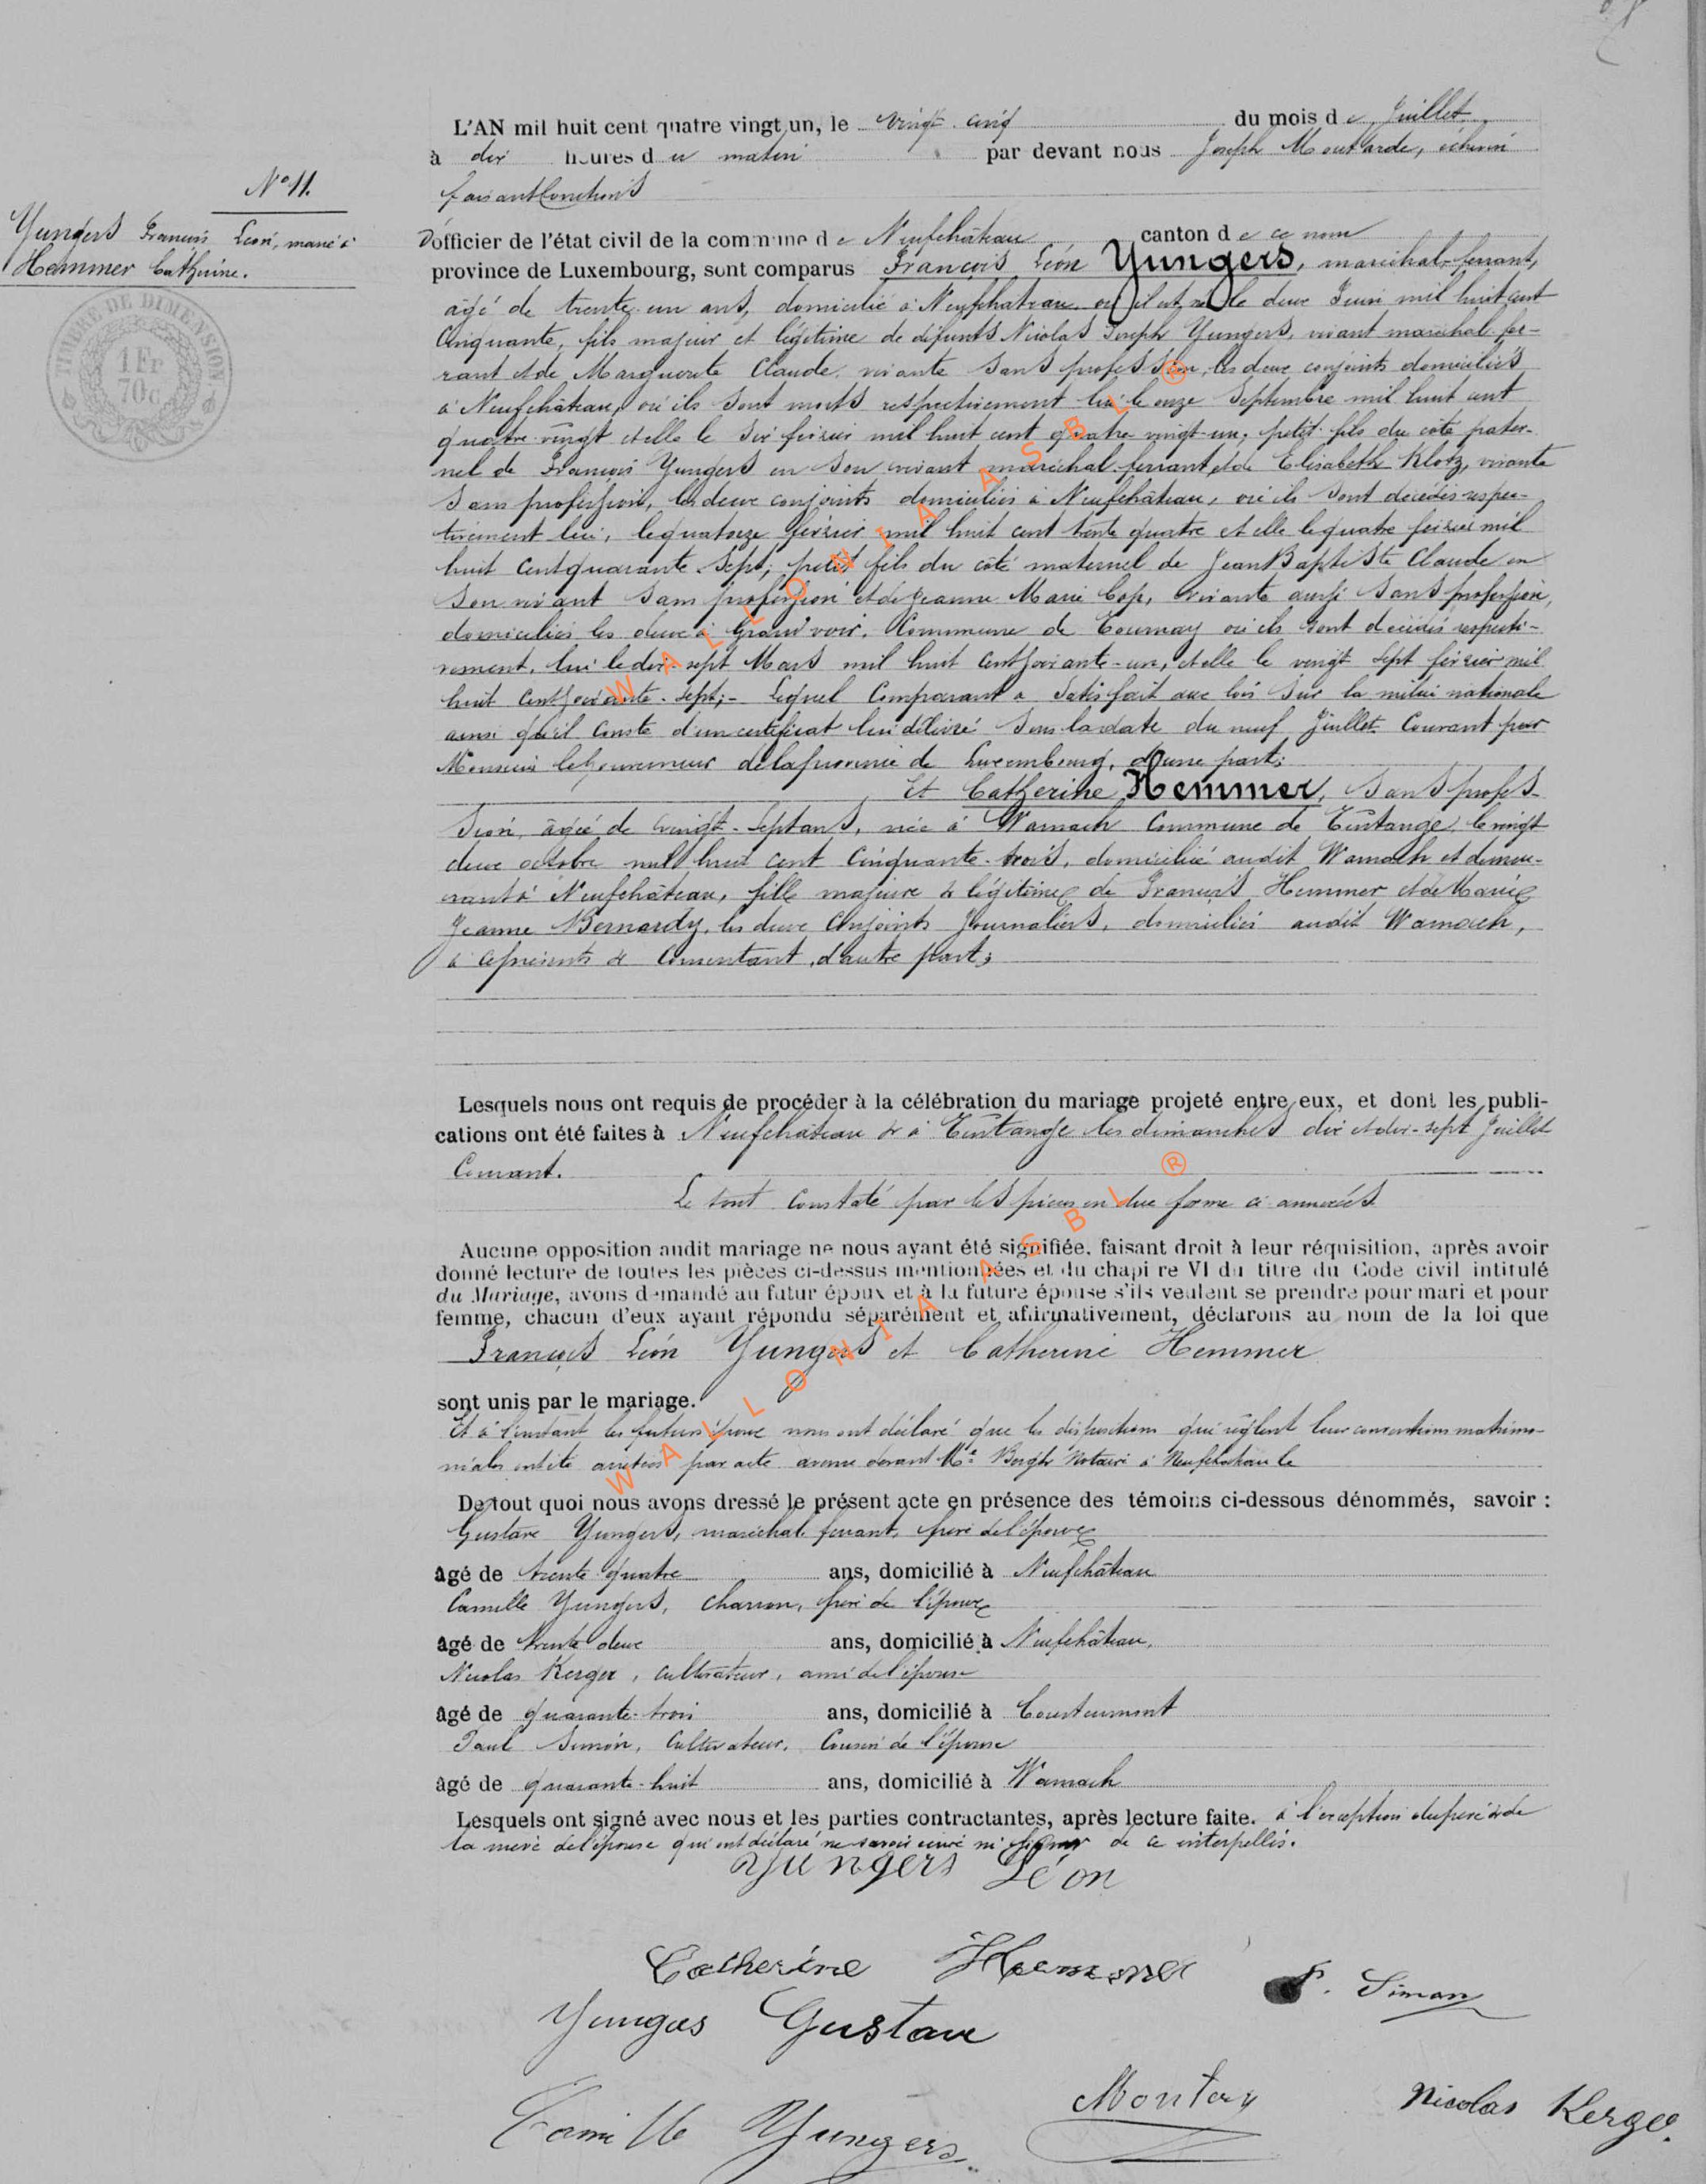 L'AN mil huit cent quatre vingt un, le vingt cinq du mois de Juillet
à dix heures du matin par devant nous Joseph Moutarde, échevin
faisant fonctions
N° 11.
Yungers François Léon, marié à
Hemmer Catherine.
d'officier de l'état civil de la commune de Neufchâteau canton de ce nom
province de Luxembourg, sont comparus François Léon Yungers, maréchal-ferrant,
TIMBRE DE DIMENSION
1 Fr
70 c
âgé de trente-un ans, domicilié à Neufchâteau où il est né le deux Juin mil huit cent
cinquante, fils majeur et légitime de défunts Nicolas Joseph Yungers, vivant maréchal-fer-
rant et de Marguerite Claude, vivante sans profession, les deux conjoints domiciliés
à Neufchâteau, où ils sont morts respectivement lui le onze Septembre mil huit cent
quatre-vingt et elle le six février mil huit cent quatre vingt-un; petit-fils du côté pater-
nel de François Yungers en son vivant maréchal-ferrant et de Elisabeth Klotz, vivante
sans profession, les deux conjoints domiciliés à Neufchâteau, où ils sont décédés respec-
tivement lui, le quatorze février mil huit cent trente quatre et elle le quatre février mil
huit cent quarante-sept; petit fils du côté maternel de Jean Baptiste Claude en
son vivant sans profession et de Jeanne Marie Cop, vivante aussi sans profession,
domiciliés les deux à Grandvoir, Commune de Tournay où ils sont décédés respecti-
vement, lui le dix-sept Mars mil huit cent soixante-un, et elle le vingt sept février mil
huit cent soixante-sept;- Lequel Comparant a satisfait aux lois sur la milice nationale
ainsi qu'il conste d'un certificat lui délivré sous la date du neuf Juillet Courant par
Monsieur le Gouverneur de la province de Luxembourg, d'une part;
Et Catherine Hemmer, sans profes-
sion, âgée de vingt-sept ans, née à Warnach Commune de Tintange, le vingt
deux octobre mil huit cent cinquante-trois, domiciliée audit Warnach et demeu-
rant à Neufchâteau, fille majeure & légitime de François Hemmer et de Marie
Jeanne Bernardy, les deux conjoints Journaliers, domiciliés audit Warnach,
à ce présents & consentant, d'autre part;
Lesquels nous ont requis de procéder à la célébration du mariage projeté entre eux, et dont les publi-
cations ont été faites à Neufchâteau & à Tintange les dimanches dix et dix-sept Juillet
Courant.
Le tout constaté par les pièces en due forme ci-annexées.
Aucune opposition audit mariage ne nous ayant été signifiée, faisant droit à leur réquisition, après avoir
donné lecture de toutes les pièces ci-dessus mentionnées et du chapi re VI du titre du Code civil intitulé
du Mariage, avons demandé au futur époux et à la future épouse s'ils veulent se prendre pour mari et pour
femme, chacun d'eux ayant répondu séparément et affirmativement, déclarons au nom de la loi que
François Léon Yungers et Catherine Hemmer
sont unis par le mariage.
Et à l'instant les futurs époux nous ont déclaré que les dispositions qui règlent leur conventions matrimo-
niales ont été arrêtées par acte avenu devant Me Notaire à Neufchâteau le
De tout quoi nous avons dressé le présent acte en présence des témoins ci-dessous dénommés, savoir :
Gustave Yungers, maréchal-ferrant, frère de l'époux
âgé de trente quatre ans, domicilié à Neufchâteau
Camille Yungers, charron, frère de l'époux
âgé de trente deux ans, domicilié à Neufchâteau,
Nicolas Kerger, cultivateur, ami de l'épouse
âgé de quarante-trois ans, domicilié à
Paul Simon, Cultivateur, Cousin de l'épouse
âgé de quarante-huit ans, domicilié à Warnach
Lesquels ont signé avec nous et les parties contractantes, après lecture faite. à l'exception du père & de
la mère de l'épouse qui ont déclaré ne savoir écrire ni signer de ce interpellés.
Yungers Léon
Catherine Hemmer
P. Simon
Yungers Gustave
Camille Yungers
Nicolas Kerger
WALLONIA ASBL ®
WALLONIA ASBL ®